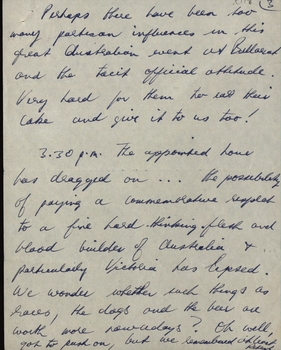 3
Perhaps there have been too
many partisan influences in this
great Australian event at Ballarat
and the tacit official attitude.
Very hard for them to eat their
cake and give it to us too!
3.30 p.m. The appointed hour
has dragged on ... the possibility
of paying a commemorative respect
to a fine hard-thinking flesh and
blood builder of Australia &
particularly Victoria has lapsed.
We wonder whether such things as
races, the dogs and the beer are
worth more nowadays? Oh well,
got to push on, but we remembered at least